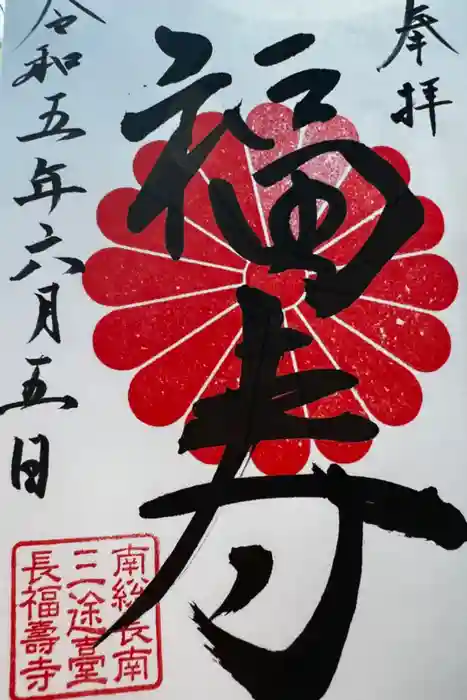 奉拝
福寿
令和五年六月五日
南総長南
三途台
長福壽寺